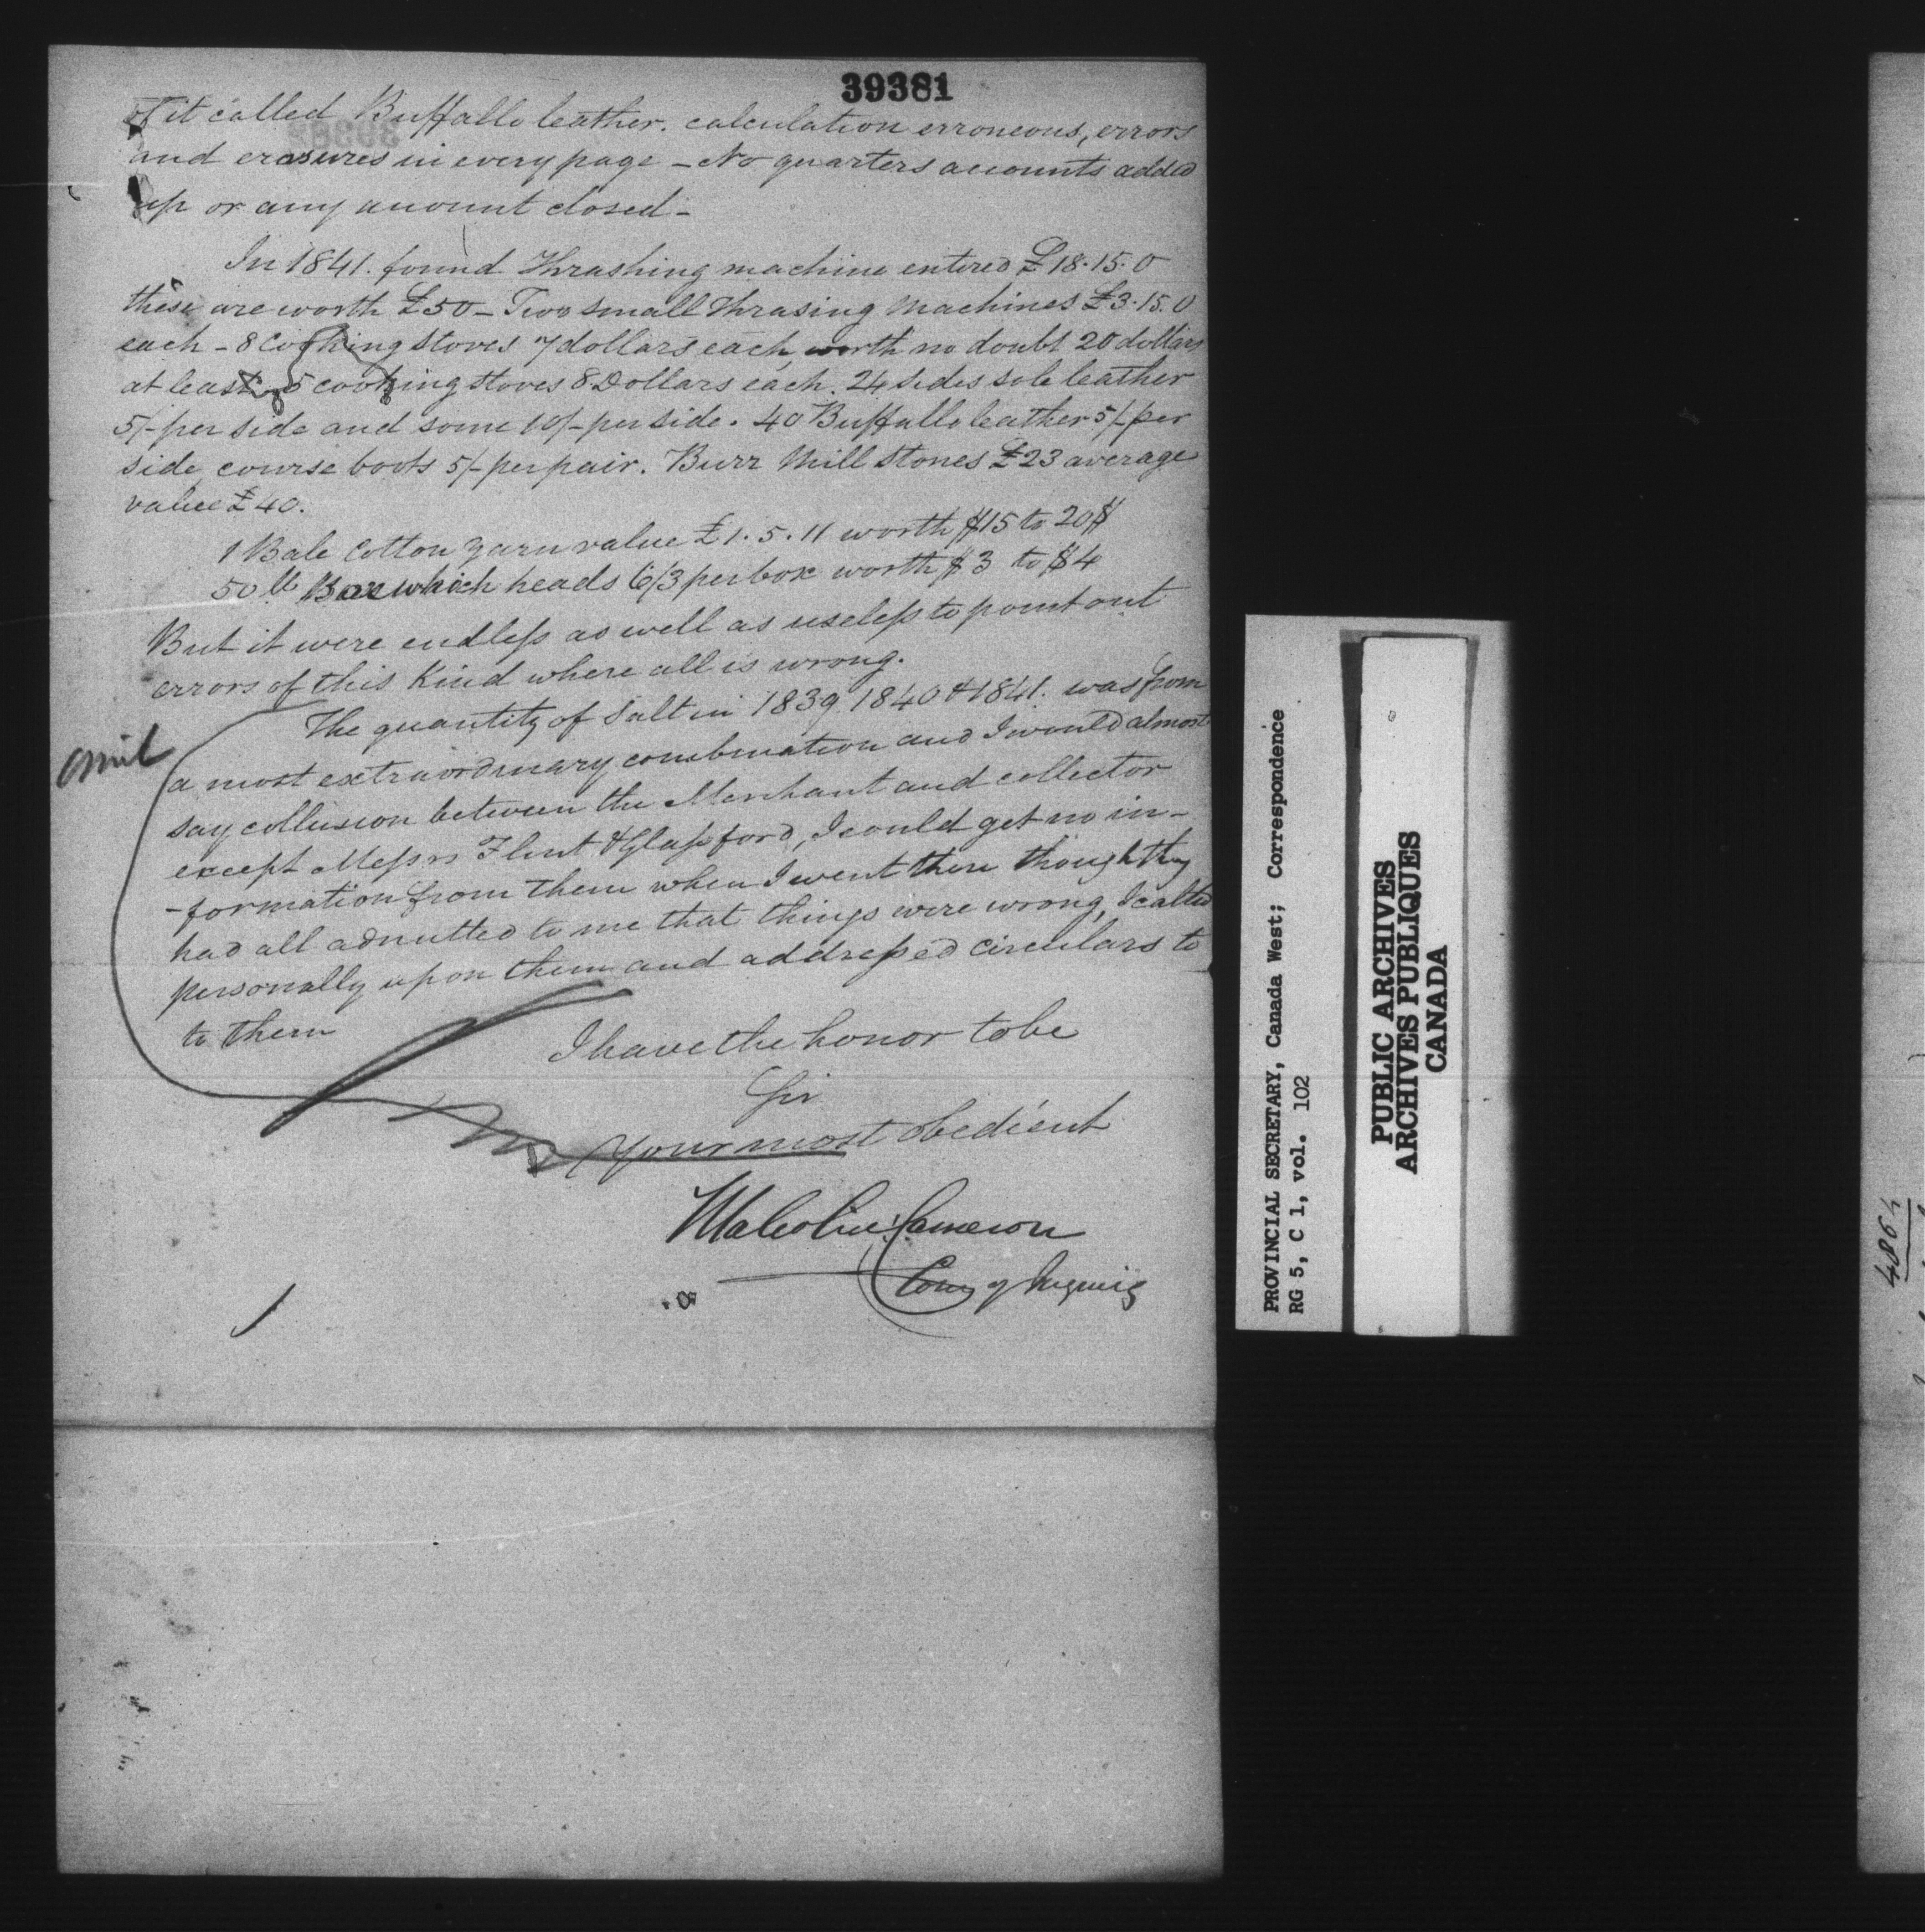 39381
of it called Buffallo leather. calculation erroneous, errors
and erasures in every page - No quarters accounts added
up or any amount closed -
In 1841. found Thrashing machine entered £18.15.0
these are worth £50 - Two small Thrasing Machines £3.15.0
each - 8 Cooking stoves 7 dollars each, worth no doubt 20 dollars
at least - 5 cooking stoves 8 Dollars each. 24 sides sole leather
5/- per side and some 10/- per side. 40 Buffallo leather 5/- per
side, course boots 5/- per pair. Burr Mill Stones £23 average
value £40.
1 Bale Cotton yarn value £1.5.11 worth $15 to 20$
50 lb Box which heads 6/3 per box worth $3 to $4
But it were endless as well as useless to point out
errors of this Kind where all is wrong.
omit
The quantity of Salt in 1839 1840 & 1841. was from
a most extraordinary combination and I would almost
say collusion between the Merchant and collector
except Messrs Flint & Glassford, I could get no in-
-formation from them when I went there though they
had all admitted to me that things were wrong, I called
personally upon them and addressed circulars to
to them
I have the honor to be
Sir
Your most obedient
Malcolm Cameron
Com of Inquiry
PROVINCIAL SECRETARY, Canada West; Correspondence
RG 5, C 1, vol. 102
PUBLIC ARCHIVES
ARCHIVES PUBLIQUES
CANADA
4864